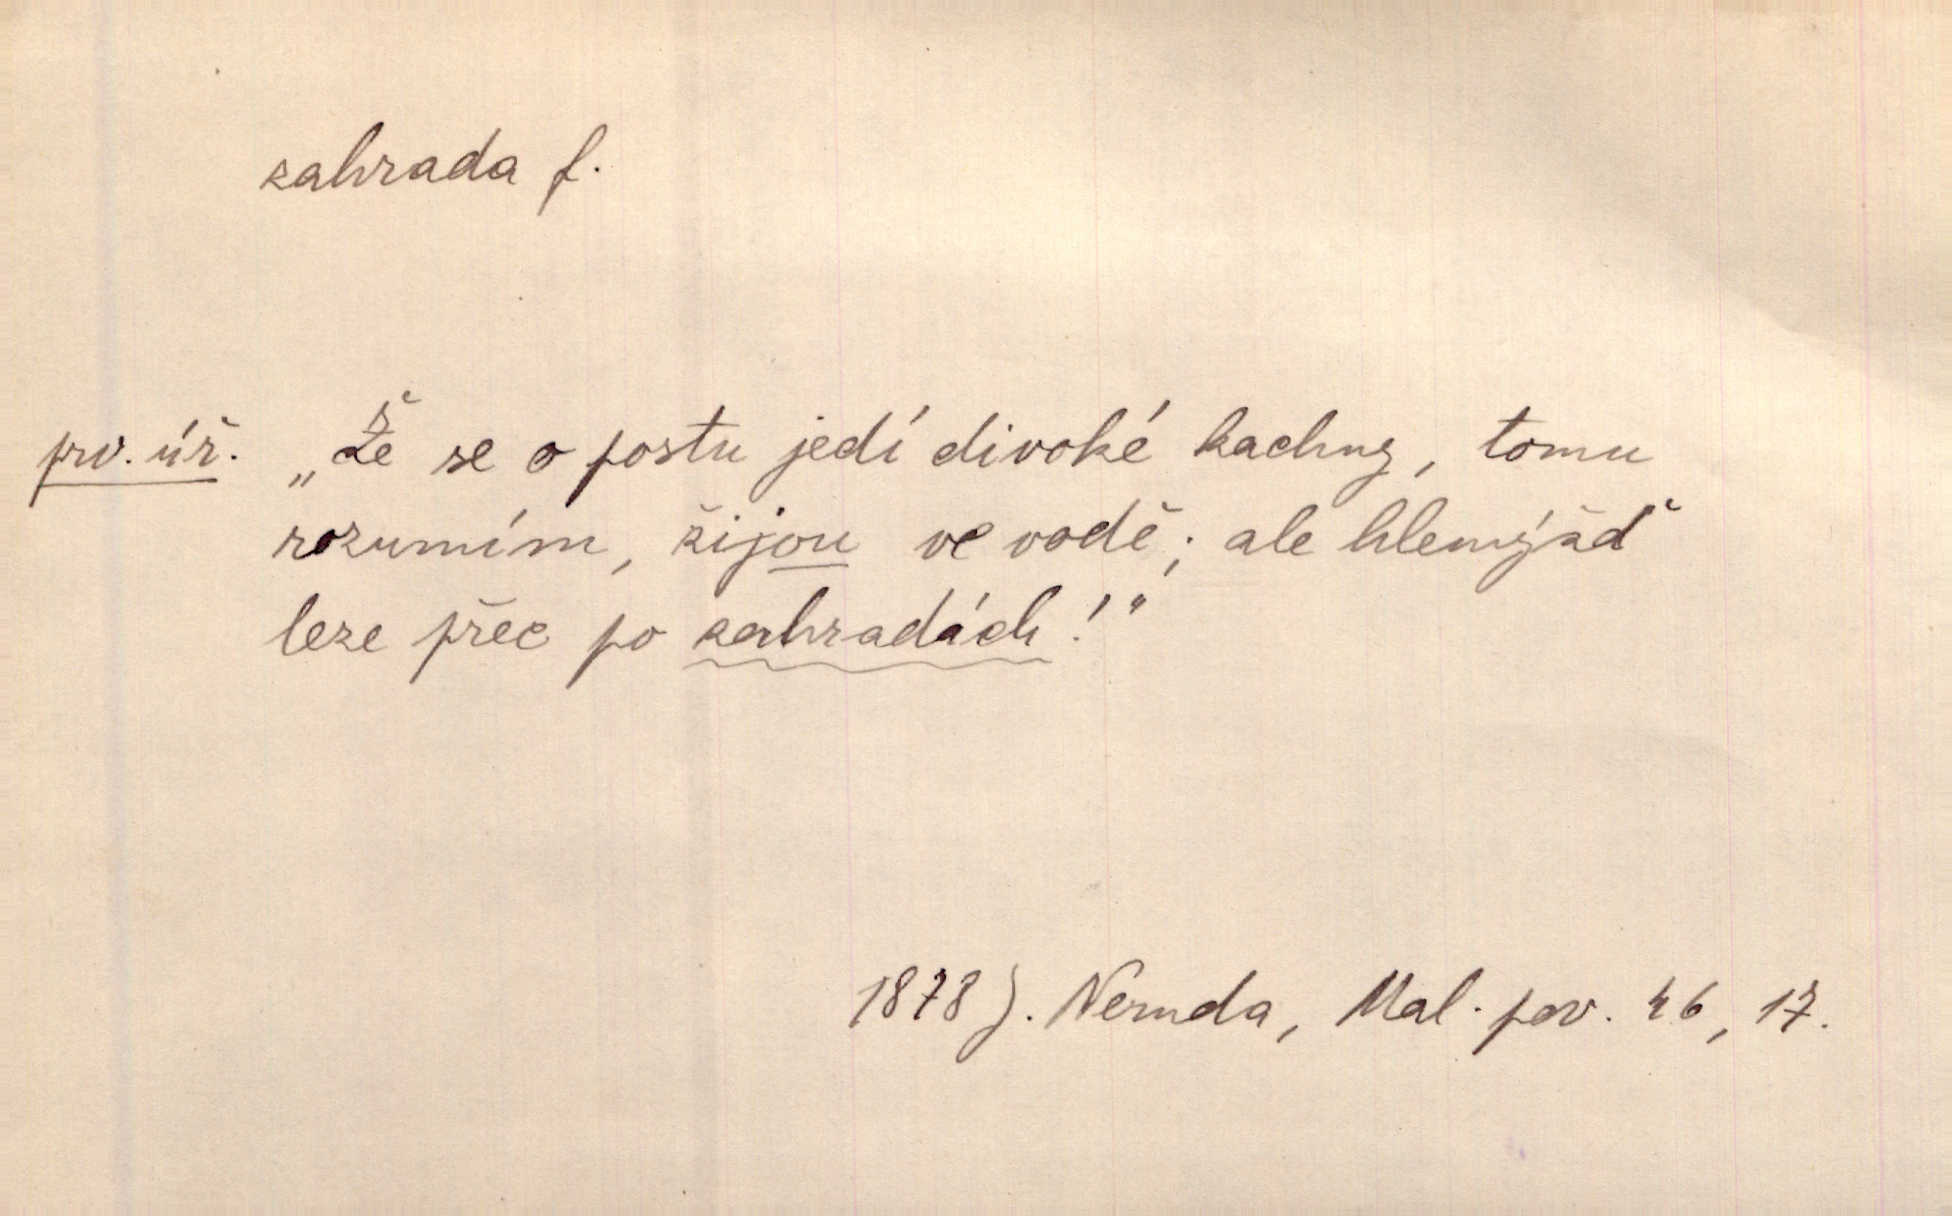 zahrada f.
prv. úř. „Že se o postu jedí divoké kachny, tomu
rozumím, žijou ve vodě; ale hlemýžď
leze přec po zahradách!“
1878 J. Neruda, Mal. pov. 46, 17.